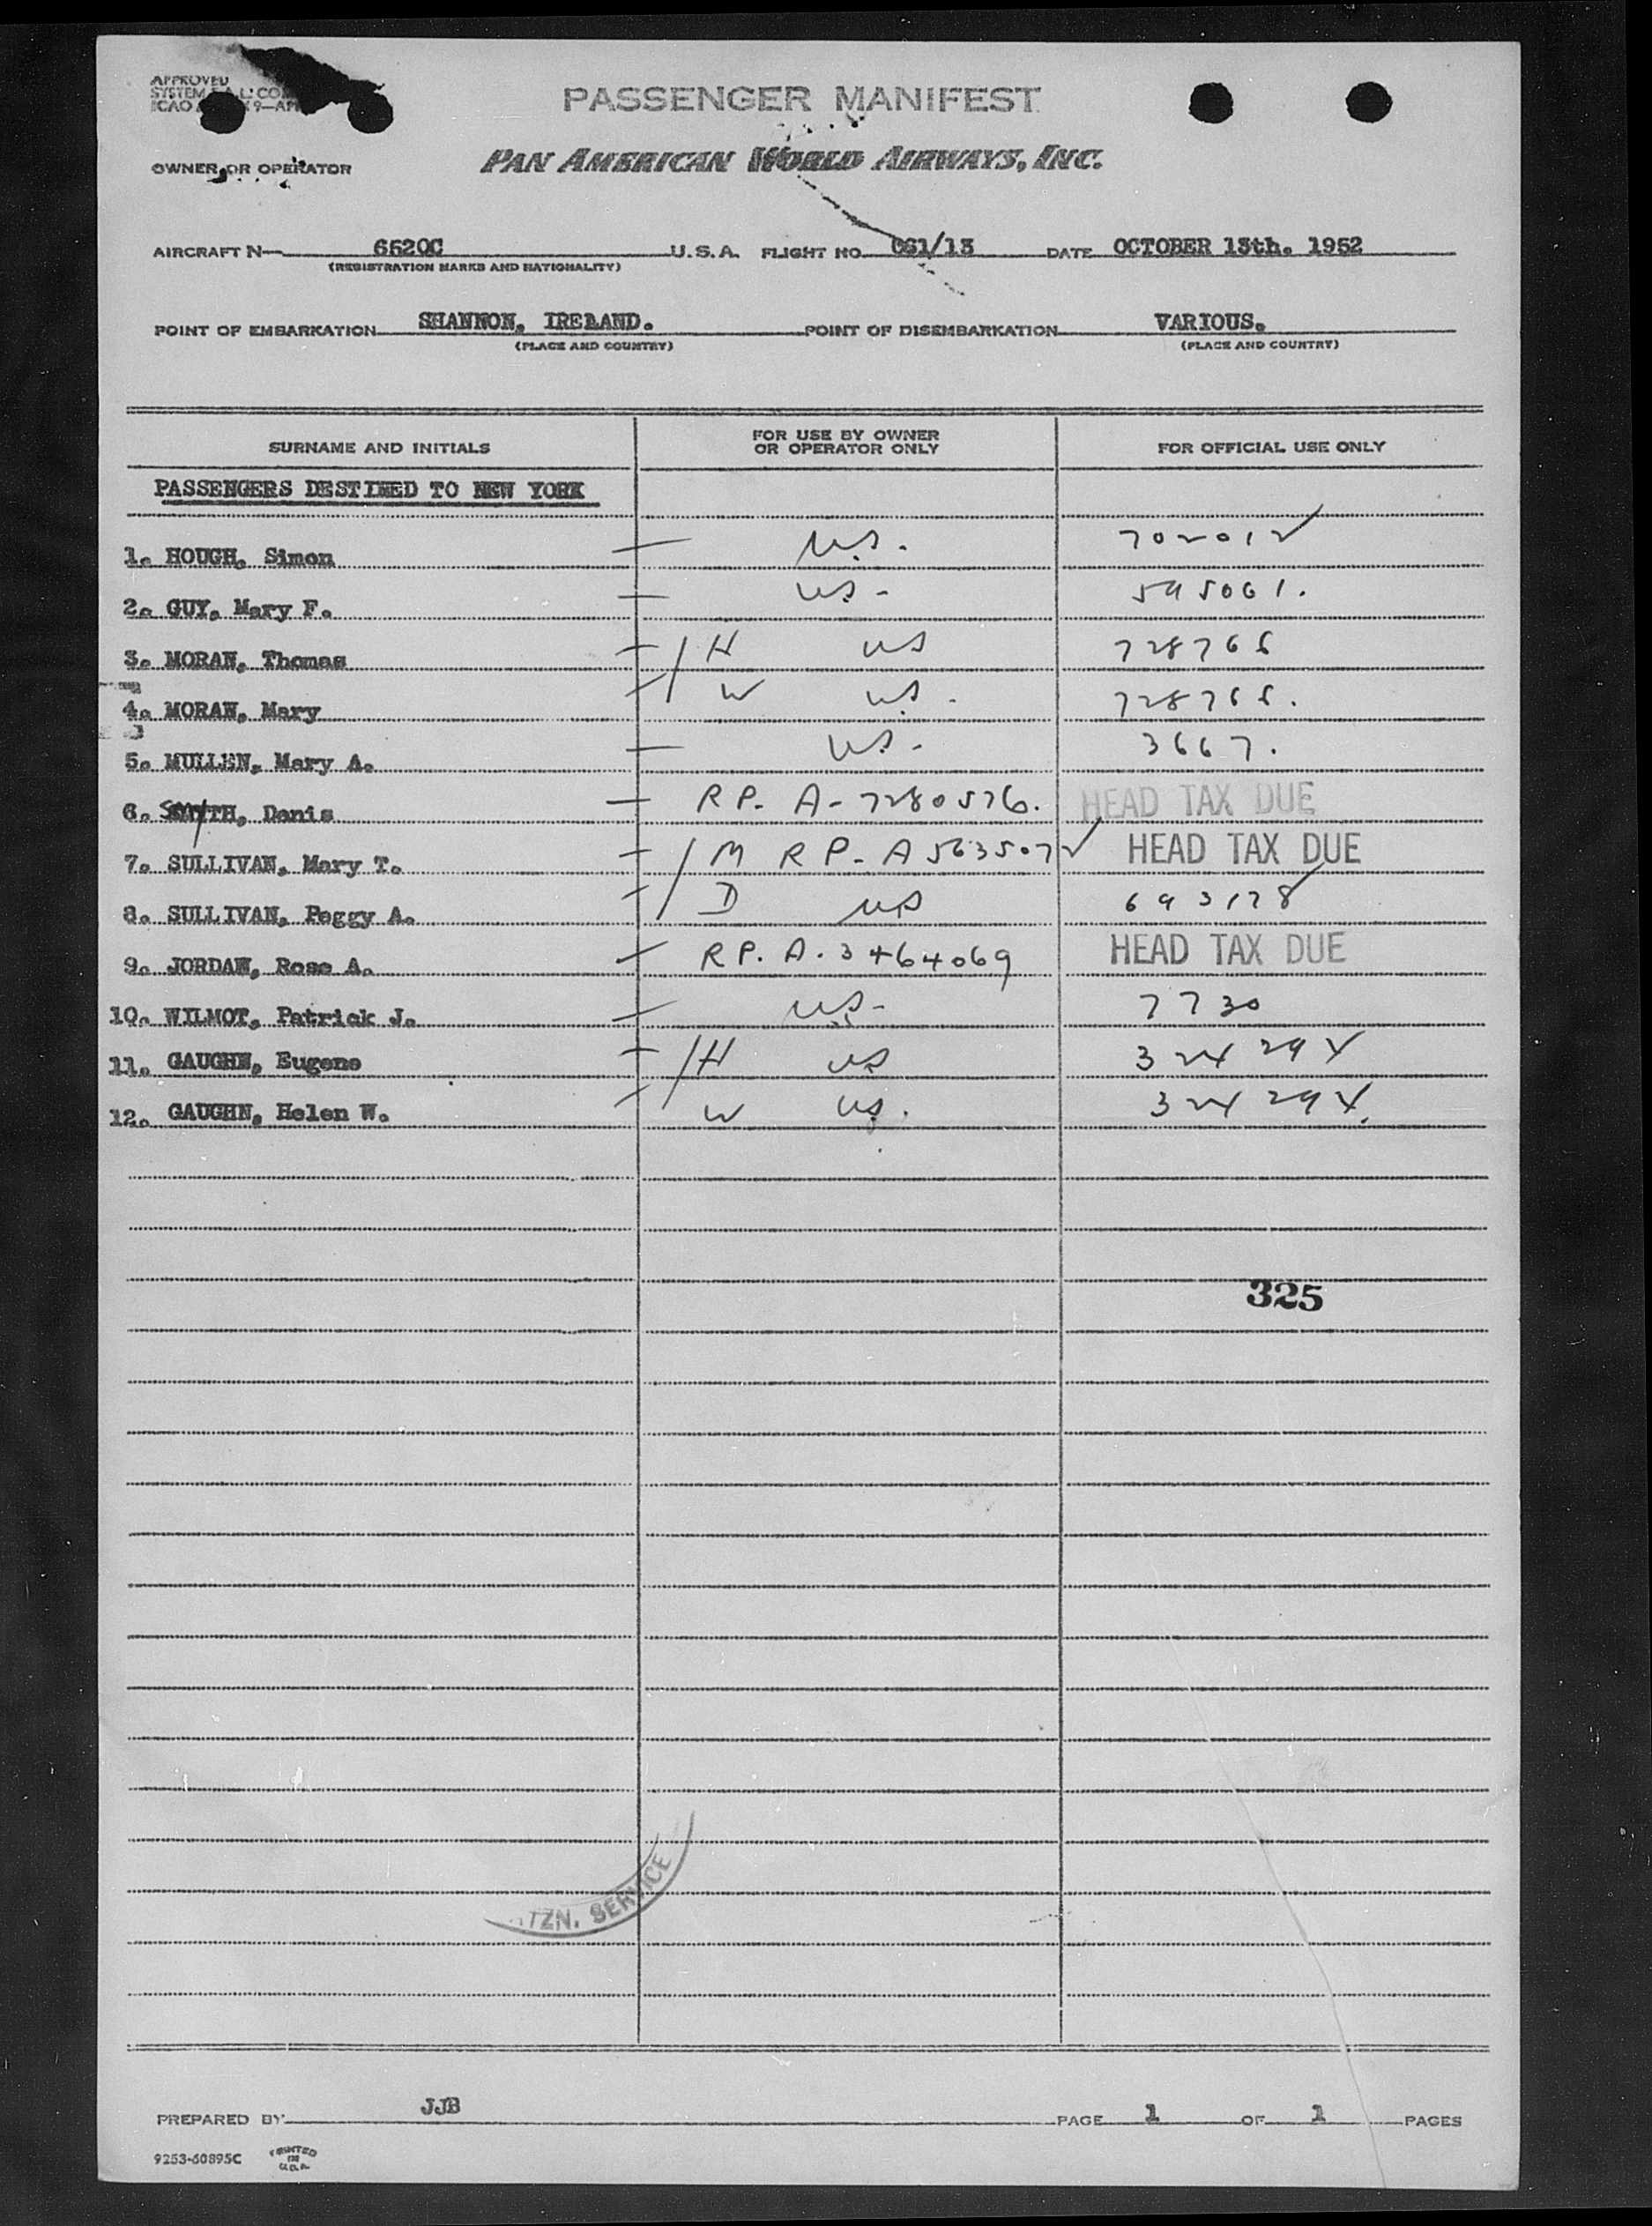 APPROVED
SYSTEM
ICAO
PASSENGER MANIFEST
OWNER OR OPERATOR PAN AMERICAN WORLD AIRWAYS, INC.
AIRCRAFT N— 6520C U.S.A. FLIGHT NO. 061/13 DATE OCTOBER 13th. 1952
(REGISTRATION MARKS AND NATIONALITY)
POINT OF EMBARKATION SHANNON, IRELAND. POINT OF DISEMBARKATION VARIOUS.
(PLACE AND COUNTRY) (PLACE AND COUNTRY)
SURNAME AND INITIALS FOR USE BY OWNER OR OPERATOR ONLY FOR OFFICIAL USE ONLY
PASSENGERS DESTINED TO NEW YORK
1. HOUGH, Simon U.S. 702012
2. GUY, Mary F. US. 595061.
3. MORAN, Thomas H US 728766
4. MORAN, Mary W U.S. 728766.
5. MULLEN, Mary A. US. 3667.
6. SMYTH, Denis RP. A-7280576. HEAD TAX DUE
7. SULLIVAN, Mary T. M RP-A563507 HEAD TAX DUE
8. SULLIVAN, Peggy A. D US 693178
9. JORDAN, Rose A. RP. A. 3464069 HEAD TAX DUE
10. WILMOT, Patrick J. US. 7730
11. GAUGHN, Eugene H US 324294
12. GAUGHN, Helen W. W US. 324294.
325
TZN. SERVICE
PREPARED BY JJB PAGE 1 OF 1 PAGES
9253-60895C PRINTED IN U.S.A.